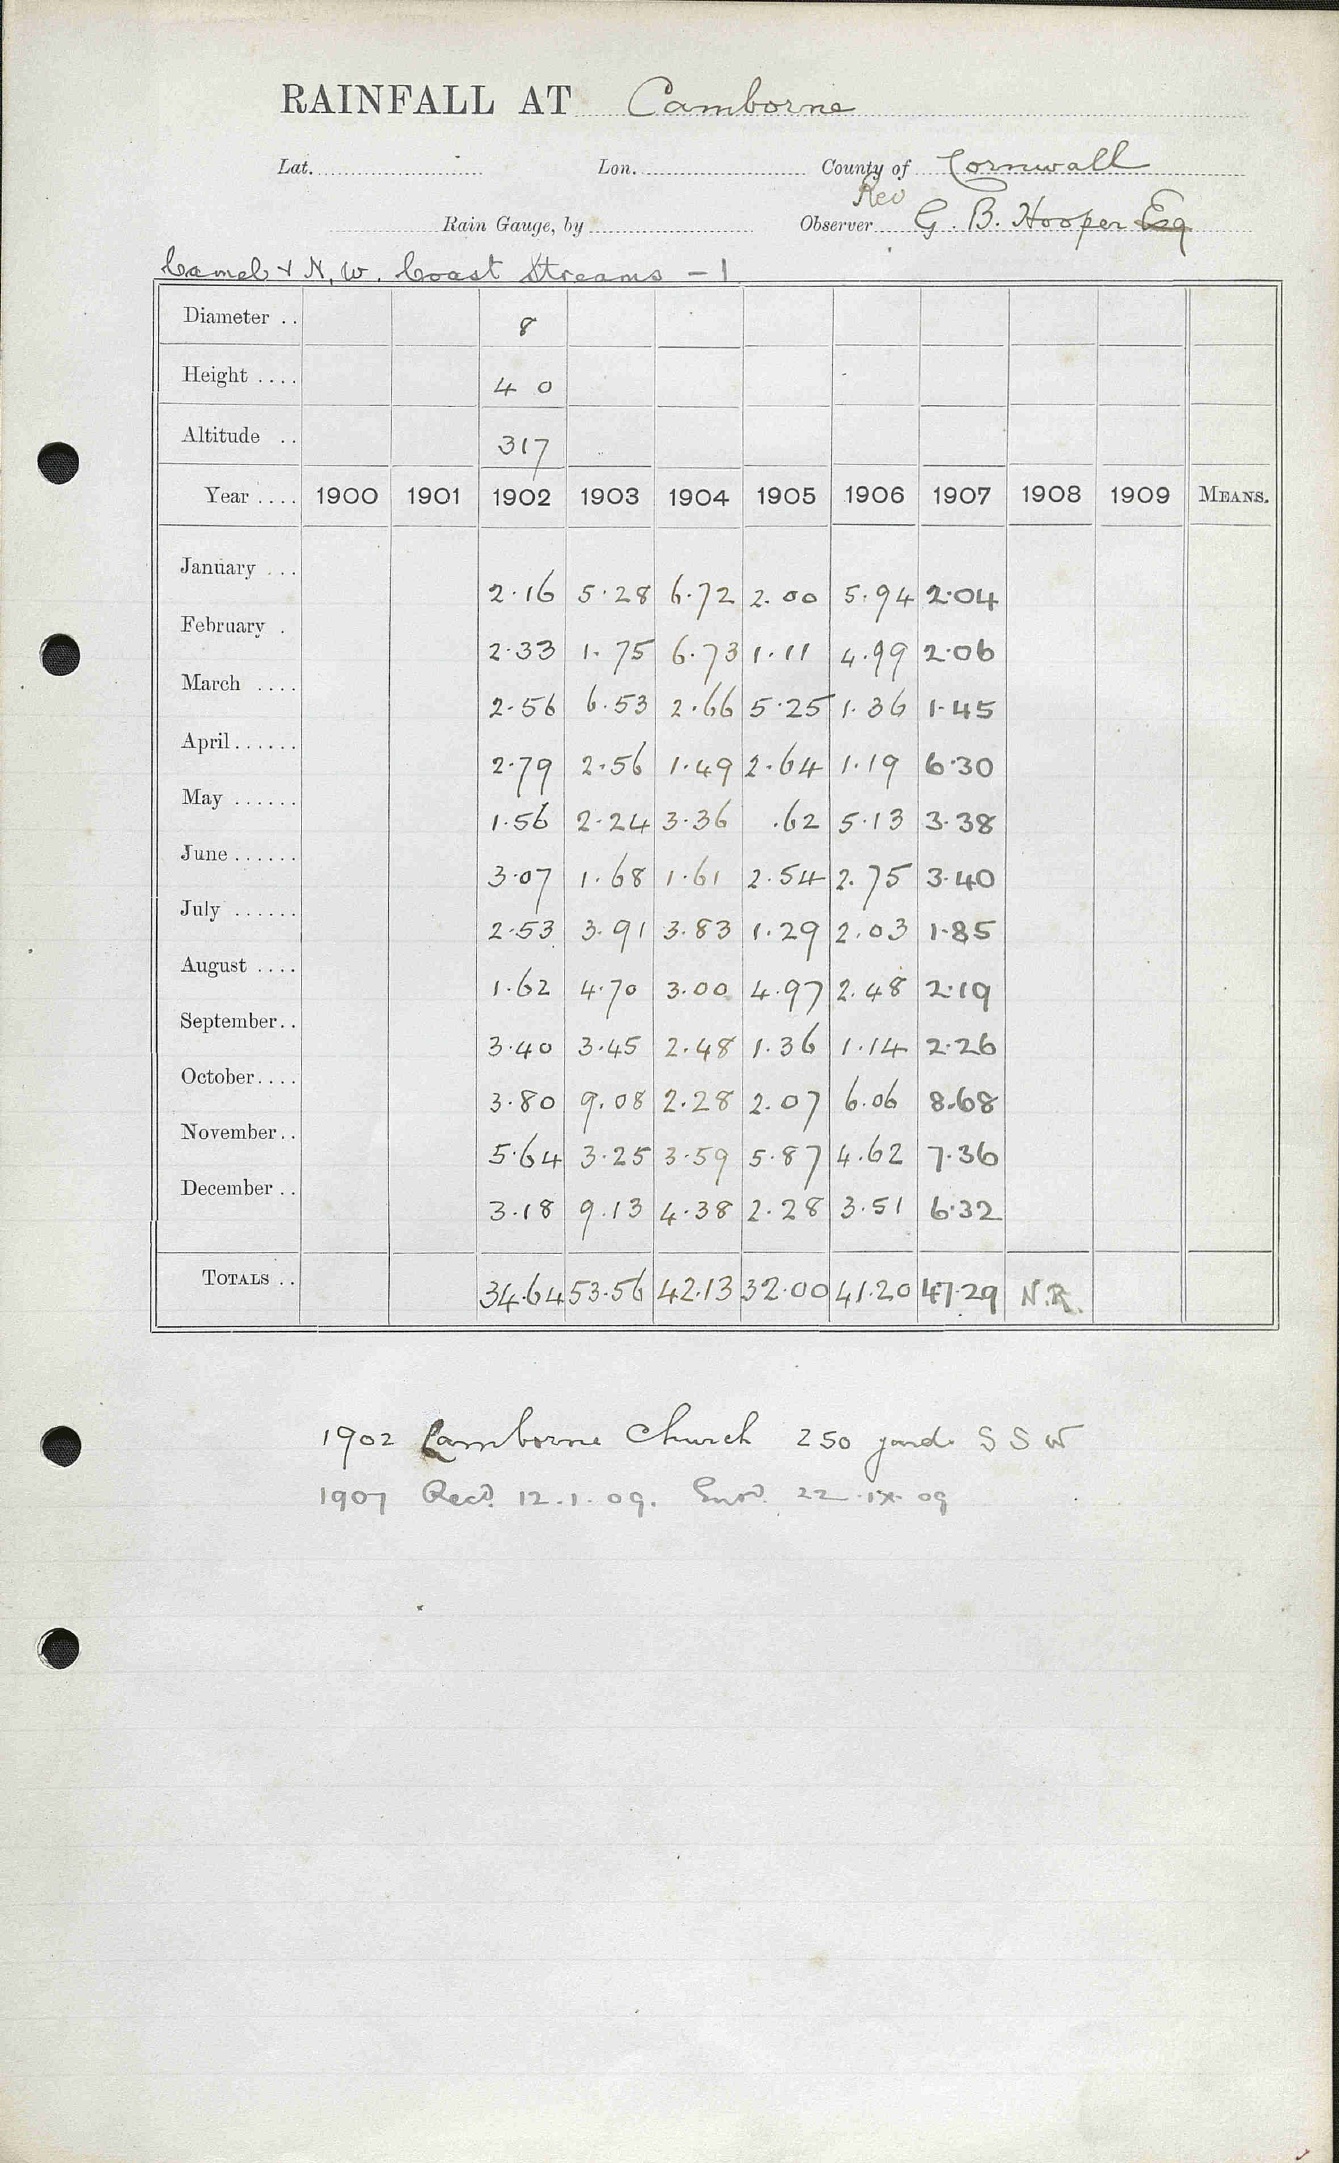 RAINFALL AT Camborne
Lat. Lon. County of Cornwall
Rev
Rain Gauge, by Observer G. B. Hooper Esq
Camel & N. W. Coast Streams - 1
Diameter .. 8
Height .... 4 0
Altitude .. 317
Year .... 1900 1901 1902 1903 1904 1905 1906 1907 1908 1909 MEANS.
January ... 2.16 5.28 6.72 2.00 5.94 2.04
February . 2.33 1.75 6.73 1.11 4.99 2.06
March .... 2.56 6.53 2.66 5.25 1.36 1.45
April ...... 2.79 2.56 1.49 2.64 1.19 6.30
May ...... 1.56 2.24 3.36 .62 5.13 3.38
June ...... 3.07 1.68 1.61 2.54 2.75 3.40
July ...... 2.53 3.91 3.83 1.29 2.03 1.85
August .... 1.62 4.70 3.00 4.97 2.48 2.19
September.. 3.40 3.45 2.48 1.36 1.14 2.26
October.... 3.80 9.08 2.28 2.07 6.06 8.68
November.. 5.64 3.25 3.59 5.87 4.62 7.36
December .. 3.18 9.13 4.38 2.28 3.51 6.32
TOTALS .. 34.64 53.56 42.13 32.00 41.20 47.29 N.R.
1902 Camborne Church 250 yards S S W
1907 Recd. 12.1.09. 22.ix.09